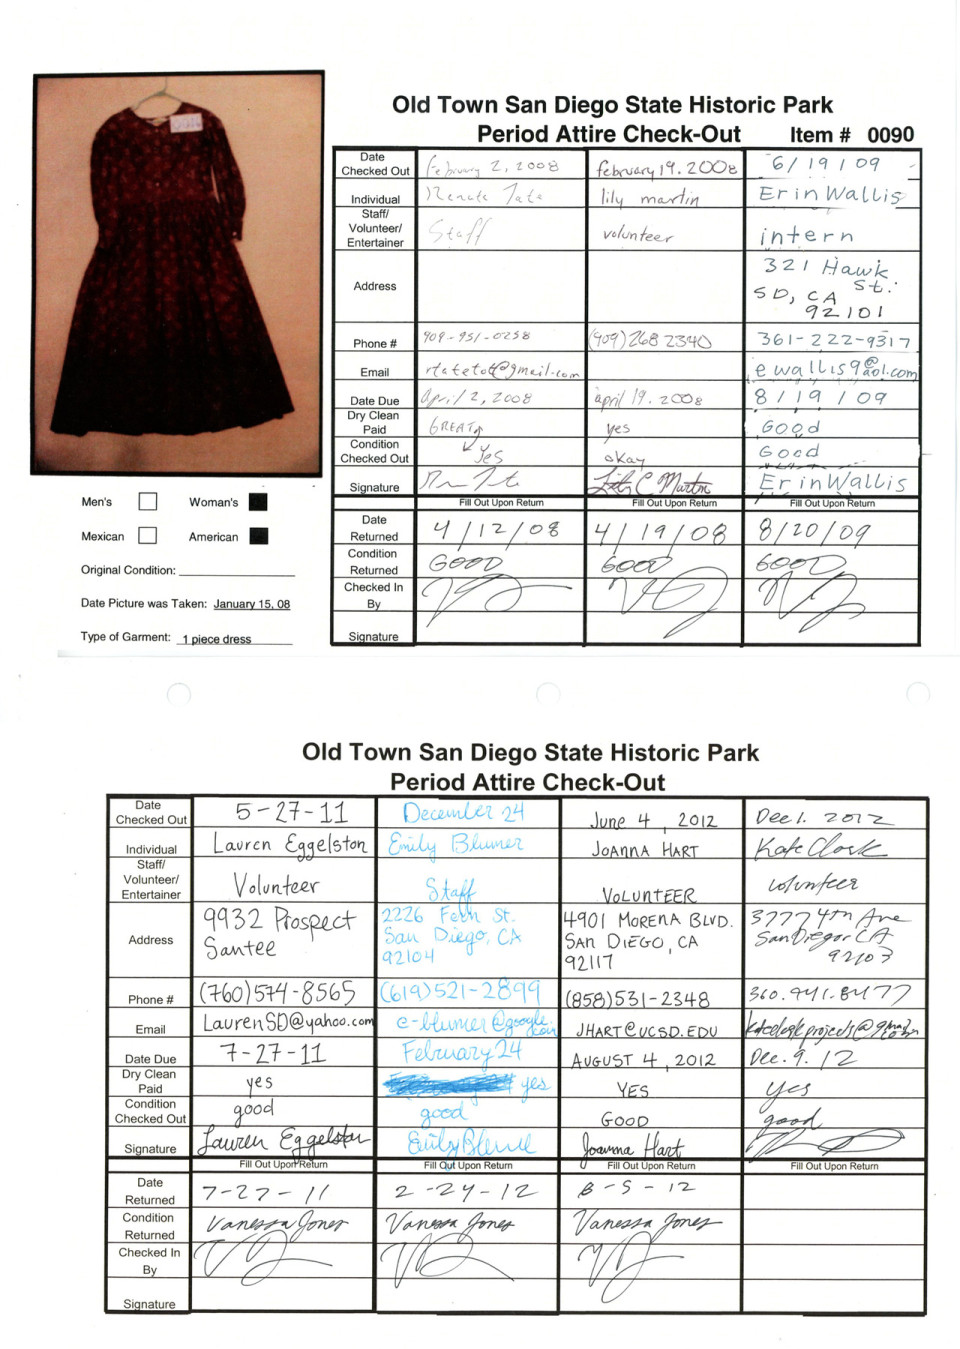 Old Town San Diego State Historic Park
Period Attire Check-Out Item # 0090
Date Checked Out February 2, 2008 february 19. 2008 6/19/09
Individual Renata Tate lily martin Erin Wallis
Staff/ Volunteer/ Entertainer Staff volunteer intern
Address 321 Hawk St. SD, CA 92101
Phone # 909-951-0258 (909)268 2340 361-222-9317
Email rtatetot@gmail.com ewallis9@aol.com
Date Due April 2, 2008 april 19. 2008 8/19/09
Dry Clean Paid GREAT yes Good
Condition Checked Out Yes okay Good
Signature Lily C Martin Erin Wallis
Fill Out Upon Return Fill Out Upon Return Fill Out Upon Return
Date Returned 4/12/08 4/19/08 8/20/09
Condition Returned GOOD GOOD GOOD
Checked In By
Signature
Men's Woman's
Mexican American
Original Condition:
Date Picture was Taken: January 15, 08
Type of Garment: 1 piece dress
Old Town San Diego State Historic Park
Period Attire Check-Out
Date Checked Out 5-27-11 December 24 June 4, 2012 Dec 1. 2012
Individual Lauren Eggelston Emily Blumer JOANNA HART Kate Clark
Staff/ Volunteer/ Entertainer Volunteer Staff VOLUNTEER volunteer
Address 9932 Prospect Santee 2226 Fern St. San Diego, CA 92104 4901 MORENA BLVD. SAN DIEGO, CA 92117 3777 4th Ave San Diego CA 92103
Phone # (760)574-8565 (619)521-2899 (858)531-2348 360.941.8477
Email LaurenSD@yahoo.com e-blumer@google.com JHART@UCSD.EDU
Date Due 7-27-11 February 24 AUGUST 4, 2012 Dec. 9. 12
Dry Clean Paid yes yes YES yes
Condition Checked Out good good GOOD good
Signature Lauren Eggelston Joanna Hart
Fill Out Upon Return Fill Out Upon Return Fill Out Upon Return Fill Out Upon Return
Date Returned 7-27-11 2-24-12 8-5-12
Condition Returned Vanessa Jones Vanessa Jones Vanessa Jones
Checked In By
Signature